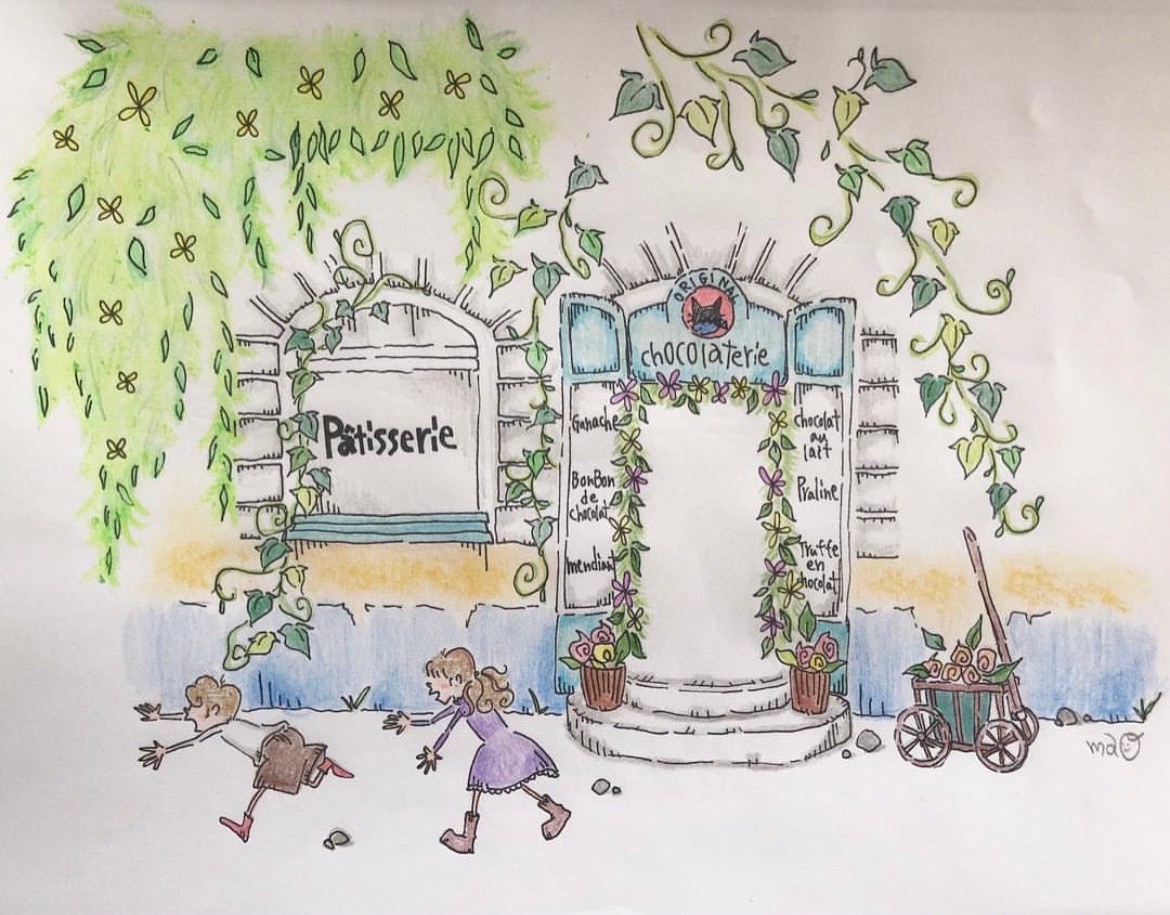 Pâtisserie
ORIGINAL
chocolaterie
Ganache
BonBon
de
chocolat
mendiant
chocolat
au
lait
Praline
Truffe
en
chocolat
mao